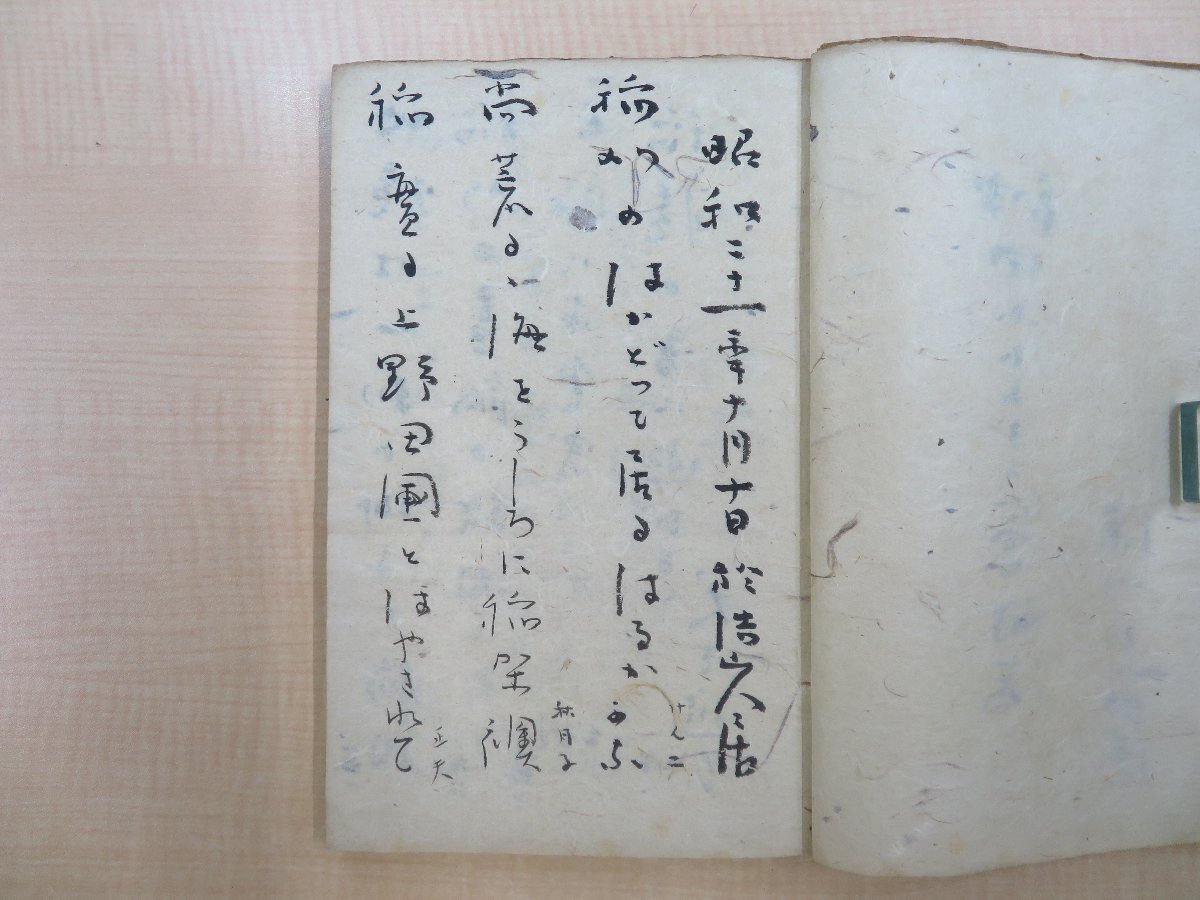 昭和二十一年十月十日 於浩山人居
稲刈のはかどつて居るはるかかな
けん二
尚荒るゝ海をうしろに稲架襖
秋月子
稲實る上野田圃とはやされて
正夫